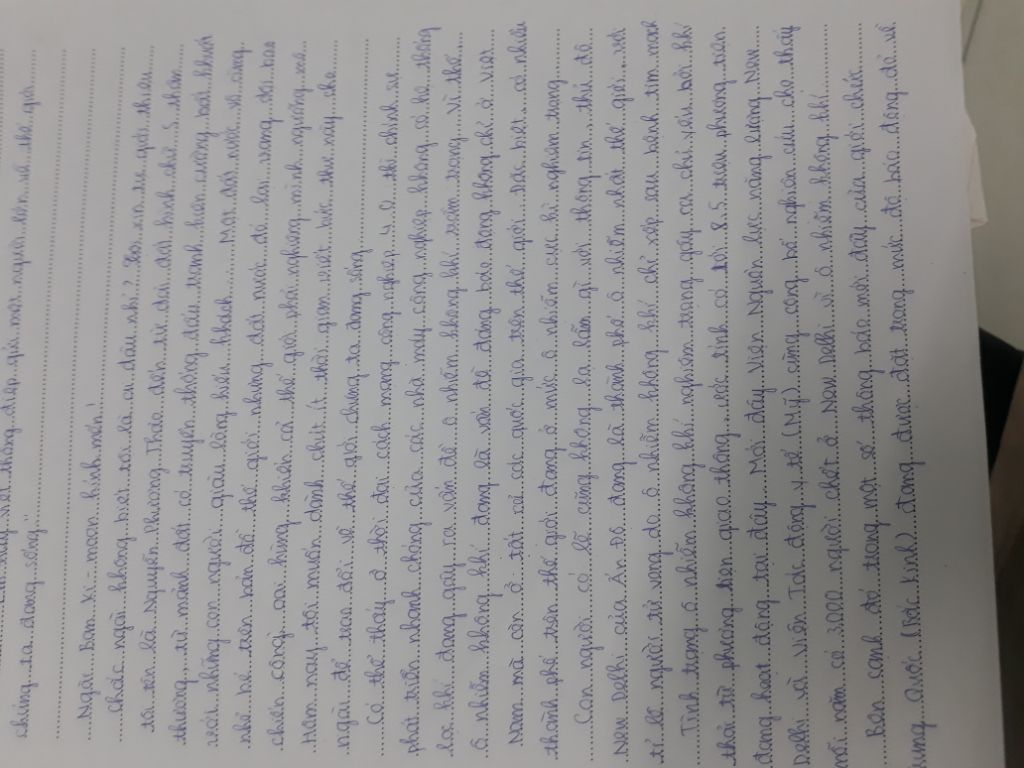 viết thông điệp gửi mọi người lớn về thế giới
chúng ta đang sống"
Ngài Ban Ki-moon kính mến!
Chắc ngài không biết tôi là ai đâu nhỉ? Tôi xin tự giới thiệu
tôi tên là Nguyễn Phương Thảo đến từ dải đất hình chữ S thân
thương, từ mảnh đất có truyền thống đấu tranh kiên cường bất khuất
với những con người giàu lòng hiếu khách. Một đất nước vô cùng
nhỏ bé trên bản đồ thế giới nhưng đất nước đó lẫy vang dội bao
chiến công oai hùng khiến cả thế giới phải nghiêng mình ngưỡng mộ.
Hôm nay tôi muốn dành chút ít thời gian viết bức thư này cho
ngài để trao đổi về thế giới chúng ta đang sống.
Có thể thấy ở thời đại cách mạng công nghiệp 4.0 thì chính sự
phát triển nhanh chóng của các nhà máy công nghiệp không có hệ thống
lọc khí đang gây ra vấn đề ô nhiễm không khí trầm trọng. Vì thế
ô nhiễm không khí đang là vấn đề đáng báo động không chỉ ở Việt
Nam mà còn ở tất cả các quốc gia trên thế giới. Đặc biệt có nhiều
thành phố trên thế giới đang ở mức ô nhiễm cực kì nghiêm trọng.
Con người có lẽ cũng không lạ lẫm gì với thông tin thủ đô
New Delhi của Ấn Độ đang là thành phố ô nhiễm nhất thế giới với
tỉ lệ người tử vong do ô nhiễm không khí chỉ xếp sau bệnh tim mạch
Tình trạng ô nhiễm không khí nghiêm trọng gây ra chủ yếu bởi khí
thải từ phương tiện giao thông, ước tính có tới 8.5 triệu phương tiện
đang hoạt động tại đây. Mới đây Viện Nguyên lực năng lượng New
Delhi và Viện Tác động y tế (Mỹ) cũng công bố nghiên cứu cho thấy
mỗi năm có 3.000 người chết ở New Delhi vì ô nhiễm không khí.
Bên cạnh đó trong một số thông báo mới đây của giới chức
Trung Quốc (Bắc Kinh) đang được đặt trong mức độ báo động đỏ về